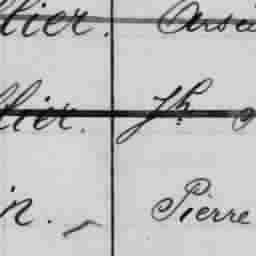 llier. Arsè
llier. Jh
in. Pierre